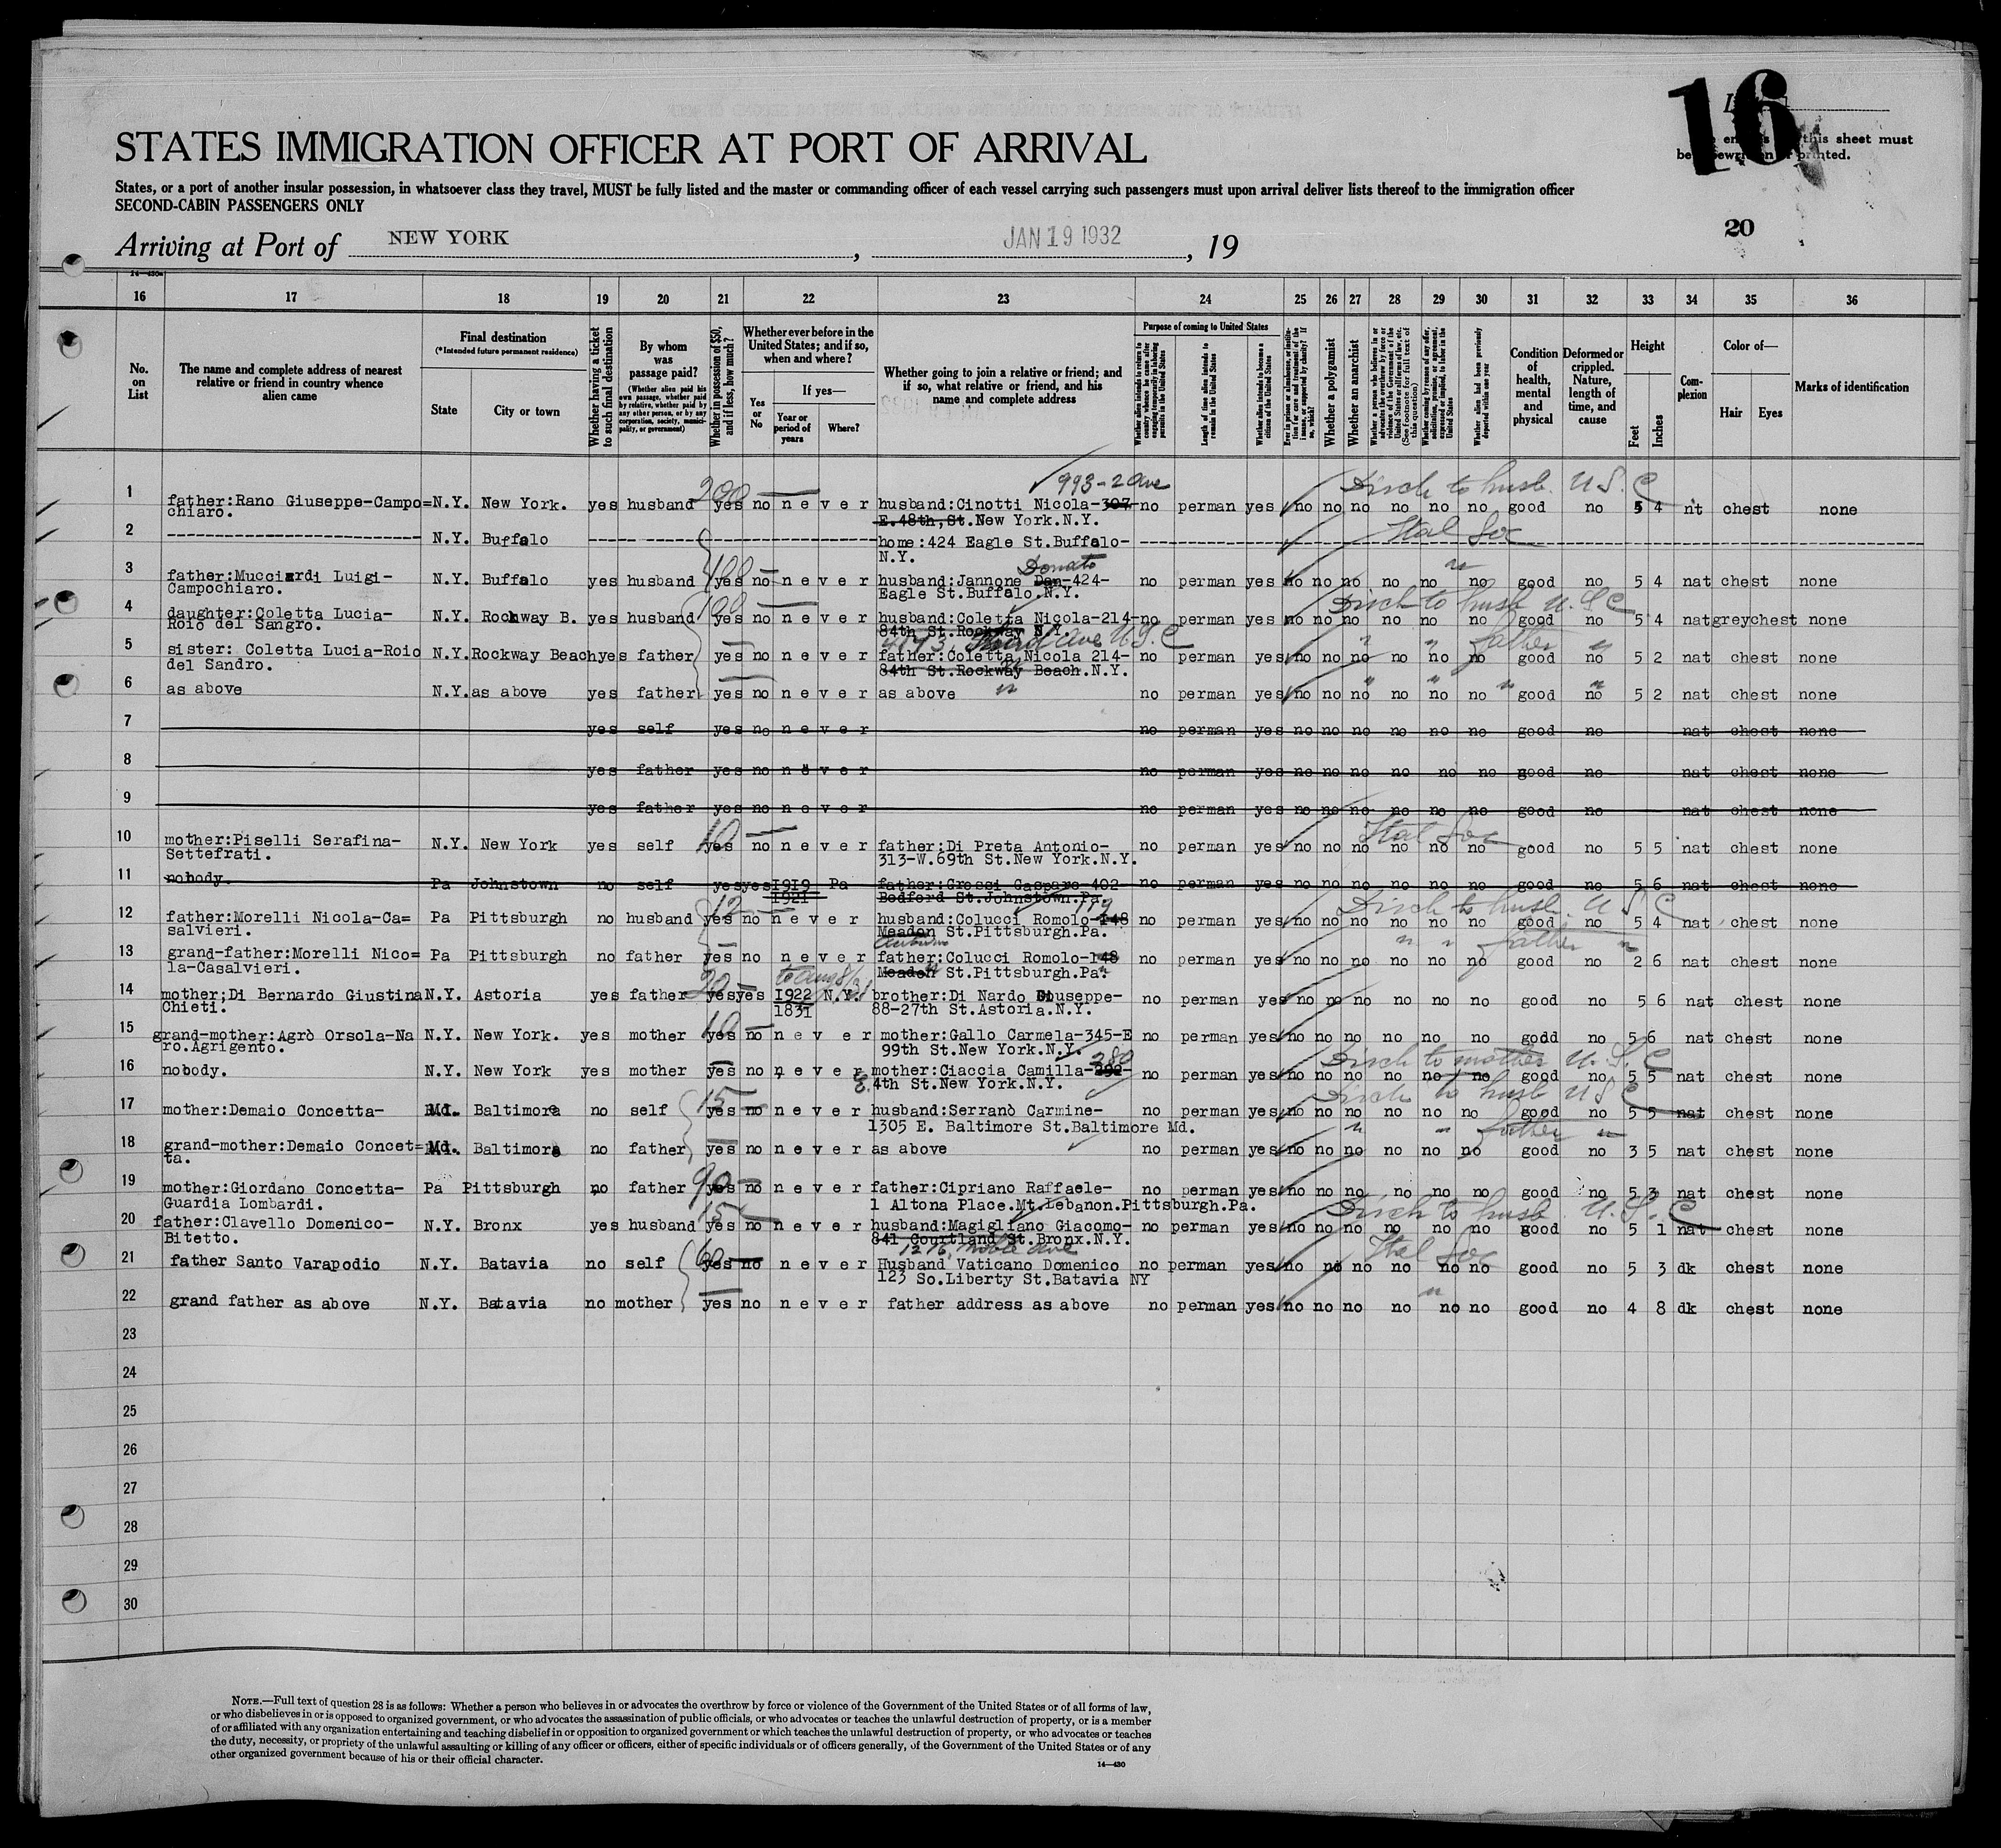 16
this sheet must
printed.
STATES IMMIGRATION OFFICER AT PORT OF ARRIVAL
States, or a port of another insular possession, in whatsoever class they travel, MUST be fully listed and the master or commanding officer of each vessel carrying such passengers must upon arrival deliver lists thereof to the immigration officer
SECOND-CABIN PASSENGERS ONLY
20
Arriving at Port of NEW YORK , JAN 19 1932 , 19
14—430a
16 17 18 19 20 21 22 23 24 25 26 27 28 29 30 31 32 33 34 35 36
No. on List
The name and complete address of nearest relative or friend in country whence alien came
Final destination
(*Intended future permanent residence)
State
City or town
Whether having a ticket to such final destination
By whom was passage paid?
(Whether alien paid his own passage, whether paid by relative, whether paid by any other person, or by any corporation, society, municipality, or government)
Whether in possession of $50, and if less, how much?
Whether ever before in the United States; and if so, when and where?
Yes or No
If yes—
Year or period of years
Where?
Whether going to join a relative or friend; and if so, what relative or friend, and his name and complete address
Purpose of coming to United States
Length of time alien intends to remain in the United States
Whether alien intends to become a citizen of the United States
Whether a polygamist
Whether an anarchist
(See footnote for full text of this question)
Whether alien had been previously deported within one year
Condition of health, mental and physical
Deformed or crippled. Nature, length of time, and cause
Height
Feet
Inches
Complexion
Color of—
Hair
Eyes
Marks of identification
993-2 Ave
1 father:Rano Giuseppe-Campo= N.Y. New York. yes husband 200 yes no never husband:Cinotti Nicola-307- no perman yes no no no no no no good no 5 4 nt chest none
chiaro. E.48th,St.New York.N.Y.
2 N.Y. Buffalo home:424 Eagle St.Buffalo- Ital Soc
N.Y.
Donato
3 father:Mucciardi Luigi- N.Y. Buffalo yes husband 100 yes no never husband:Jannone Dan-424- no perman yes no no no no no no good no 5 4 nat chest none
Campochiaro. Eagle St.Buffalo.N.Y.
4 daughter:Coletta Lucia- N.Y. Rockway B. yes husband 100 yes no never husband:Coletta Nicola-214- no perman yes no no no no no no good no 5 4 nat grey chest none
Roio del Sangro. 84th St.Rockway N.Y.
4173 Third Ave U.S.C
5 sister: Coletta Lucia-Roio N.Y. Rockway Beach yes father yes no never father:Coletta Nicola 214- no perman yes no no no no no no good no 5 2 nat chest none
del Sandro. 84th St.Rockway Beach.N.Y.
6 as above N.Y. as above yes father yes no never as above no perman yes no no no no no no good no 5 2 nat chest none
7 yes self yes no never no perman yes no no no no no no good no nat chest none
8 yes father yes no never no perman yes no no no no no no good no nat chest none
9 yes father yes no never no perman yes no no no no no no good no nat chest none
10 mother:Piselli Serafina- N.Y. New York yes self 10 yes no never father:Di Preta Antonio- no perman yes no no no no no no good no 5 5 nat chest none
Settefrati. 313-W.69th St.New York.N.Y. Ital Soc
11 nobody. Pa Johnstown no self yes yes 1919 Pa father:Grossi Gaspare-402- no perman yes no no no no no no good no 5 6 nat chest none
1921 Bedford St.Johnstown.Pa.
12 father:Morelli Nicola-Ca= Pa Pittsburgh no husband 12 yes no never husband:Colucci Romolo-148 119 no perman yes no no no no no no good no 5 4 nat chest none
salvieri. Meadon St.Pittsburgh.Pa.
13 grand-father:Morelli Nico= Pa Pittsburgh no father yes no never father:Colucci Romolo-148 no perman yes no no no no no no good no 2 6 nat chest none
la-Casalvieri. Meadon St.Pittsburgh.Pa.
14 mother;Di Bernardo Giustina N.Y. Astoria yes father 20 yes yes 1922 N.Y. brother:Di Nardo Giuseppe- no perman yes no no no no no no good no 5 6 nat chest none
Chieti. 1831 88-27th St.Astoria.N.Y.
15 grand-mother:Agrò Orsola-Na N.Y. New York. yes mother 10 yes no never mother:Gallo Carmela-345-E no perman yes no no no no no no godd no 5 6 nat chest none
ro.Agrigento. 99th St.New York.N.Y.
280
16 nobody. N.Y. New York yes mother yes no never mother:Ciaccia Camilla-292- no perman yes no no no no no no good no 5 5 nat chest none
E. 4th St.New York.N.Y.
17 mother:Demaio Concetta- Md. Baltimore no self 15 yes no never husband:Serranò Carmine- no perman yes no no no no no no good no 5 5 nat chest none
1305 E. Baltimore St.Baltimore Md.
18 grand-mother:Demaio Concet= Md. Baltimore no father yes no never as above no perman yes no no no no no no good no 3 5 nat chest none
ta.
19 mother:Giordano Concetta- Pa Pittsburgh no father 90 yes no never father:Cipriano Raffaele- no perman yes no no no no no no good no 5 3 nat chest none
Guardia Lombardi. 1 Altona Place.Mt.Lebanon.Pittsburgh.Pa.
20 father:Clavello Domenico- N.Y. Bronx yes husband 15 yes no never husband:Magigliano Giacomo- no perman yes no no no no no no good no 5 1 nat chest none
Bitetto. 841 Courtland St.Bronx.N.Y.
1216, Noble Ave
21 father Santo Varapodio N.Y. Batavia no self 60 yes no never Husband Vaticano Domenico no perman yes no no no no no no good no 5 3 dk chest none
123 So.Liberty St.Batavia NY Ital Soc
22 grand father as above N.Y. Batavia no mother yes no never father address as above no perman yes no no no no no no good no 4 8 dk chest none
23
24
25
26
27
28
29
30
NOTE.—Full text of question 28 is as follows: Whether a person who believes in or advocates the overthrow by force or violence of the Government of the United States or of all forms of law,
or who disbelieves in or is opposed to organized government, or who advocates the assassination of public officials, or who advocates or teaches the unlawful destruction of property, or is a member
of or affiliated with any organization entertaining and teaching disbelief in or opposition to organized government or which teaches the unlawful destruction of property, or who advocates or teaches
the duty, necessity, or propriety of the unlawful assaulting or killing of any officer or officers, either of specific individuals or of officers generally, of the Government of the United States or of any
other organized government because of his or their official character.
14—430